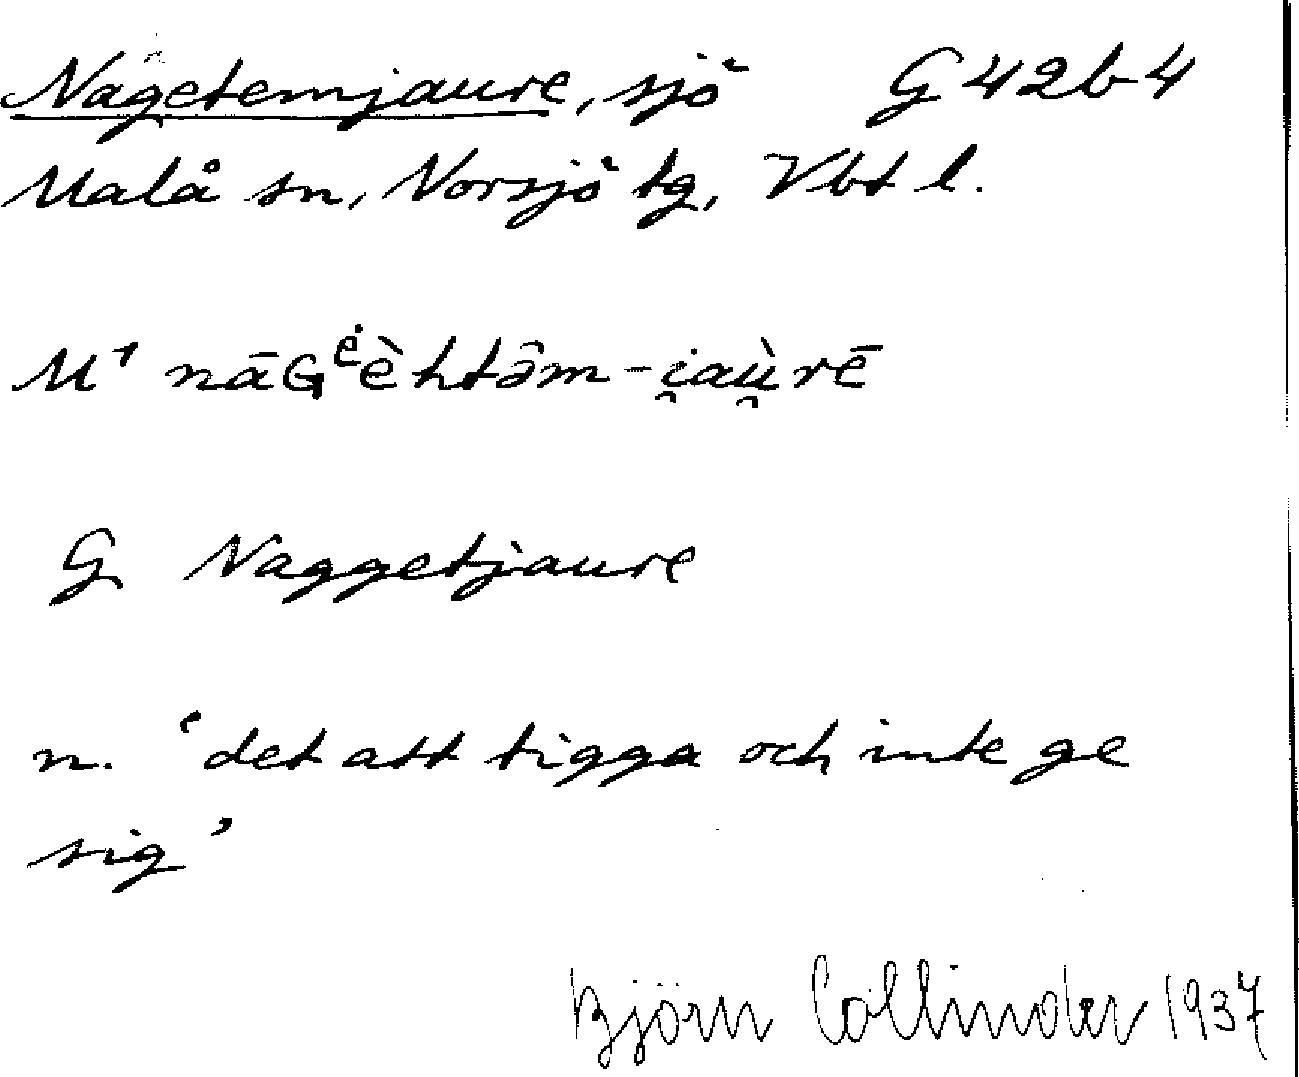 Nagetemjaure, sjö G 42b4
Malå sn, Norsjö tg, Vbt l.
M1 nāGė̀èhtə̑m-i̯aù̯rē
G Naggetjaure
n. ‘det att tigga och inte ge
sig’
Björn Collinder 1937